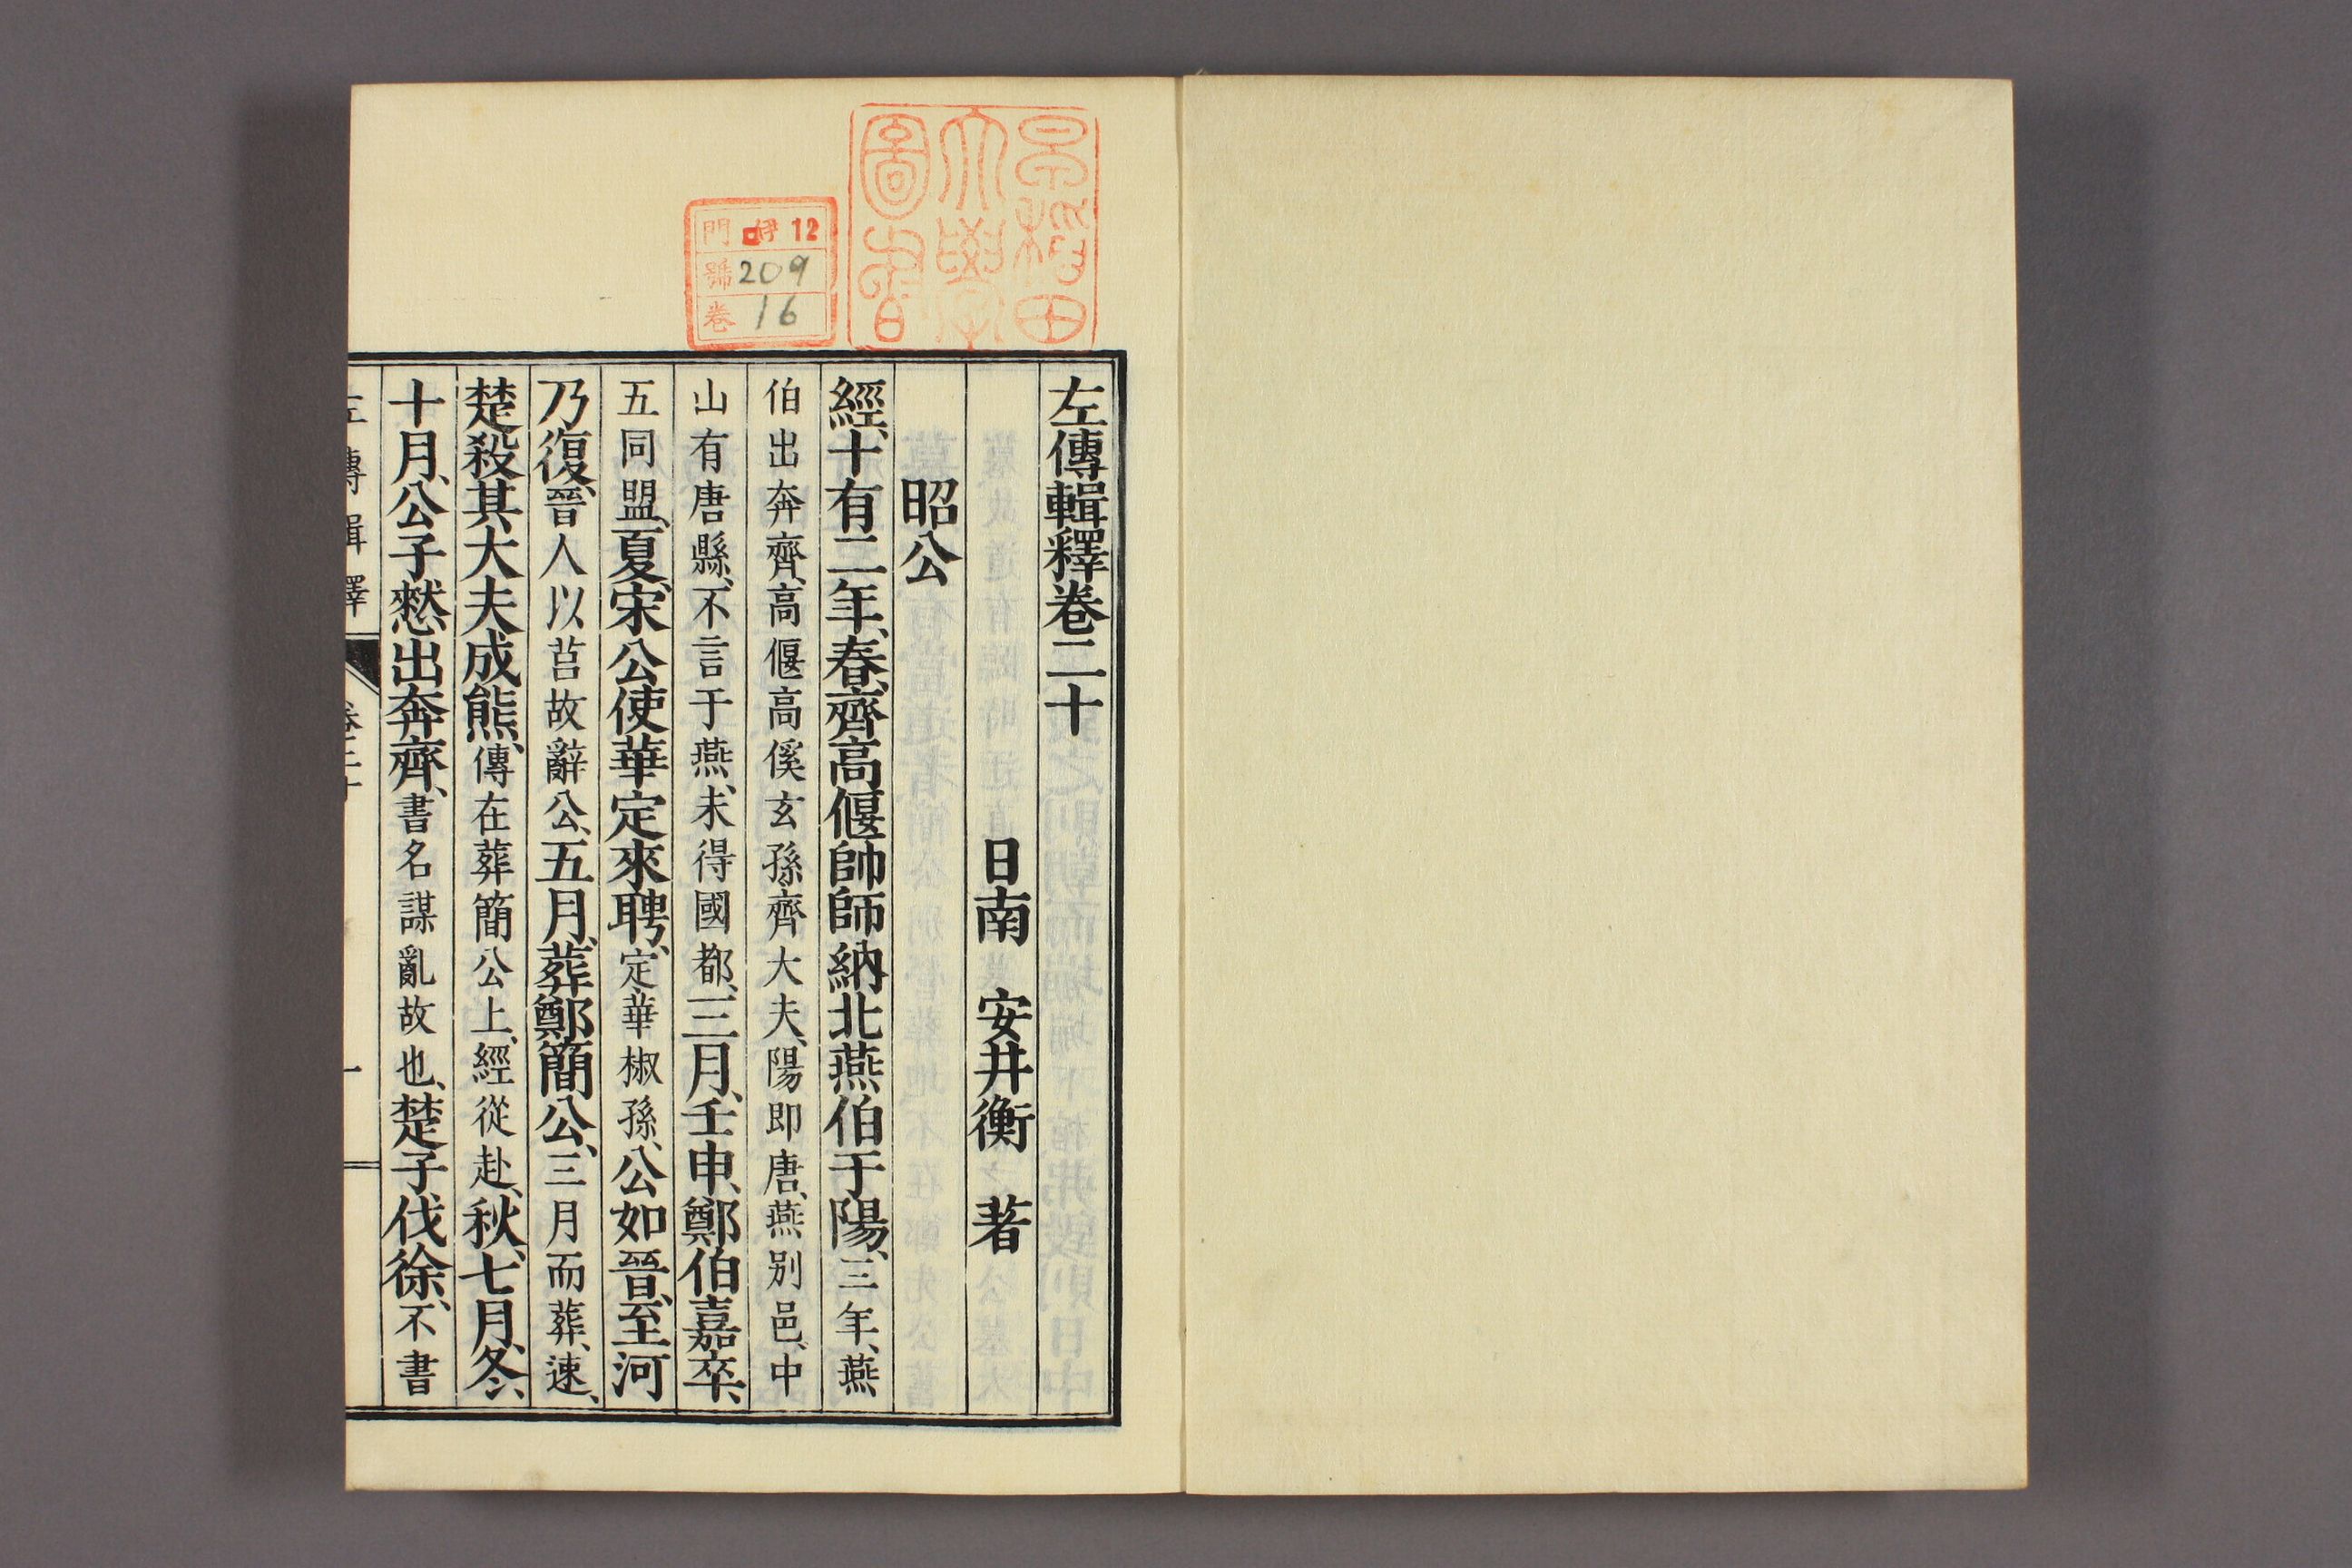 左傳輯釋卷二十
日南 安井衡 著
昭公
經、十有二年、春、齊高偃帥師納北燕伯于陽、三年、燕
伯出奔齊、高偃高傒玄孫齊大夫、陽即唐、燕別邑、中
山有唐縣、不言于燕、未得國都、三月、壬申、鄭伯嘉卒、
五同盟、夏、宋公使華定來聘、定華椒孫、公如晉、至河
乃復、晉人以莒故辭公、五月、葬鄭簡公、三月而葬、速、
楚殺其大夫成熊、傳在葬簡公上、經從赴、秋、七月、冬、
十月、公子憖出奔齊、書名謀亂故也、楚子伐徐、不書
左傳輯釋 卷二十 一
早稻田
大學
圖書
門 伊 12
號 209
卷 16